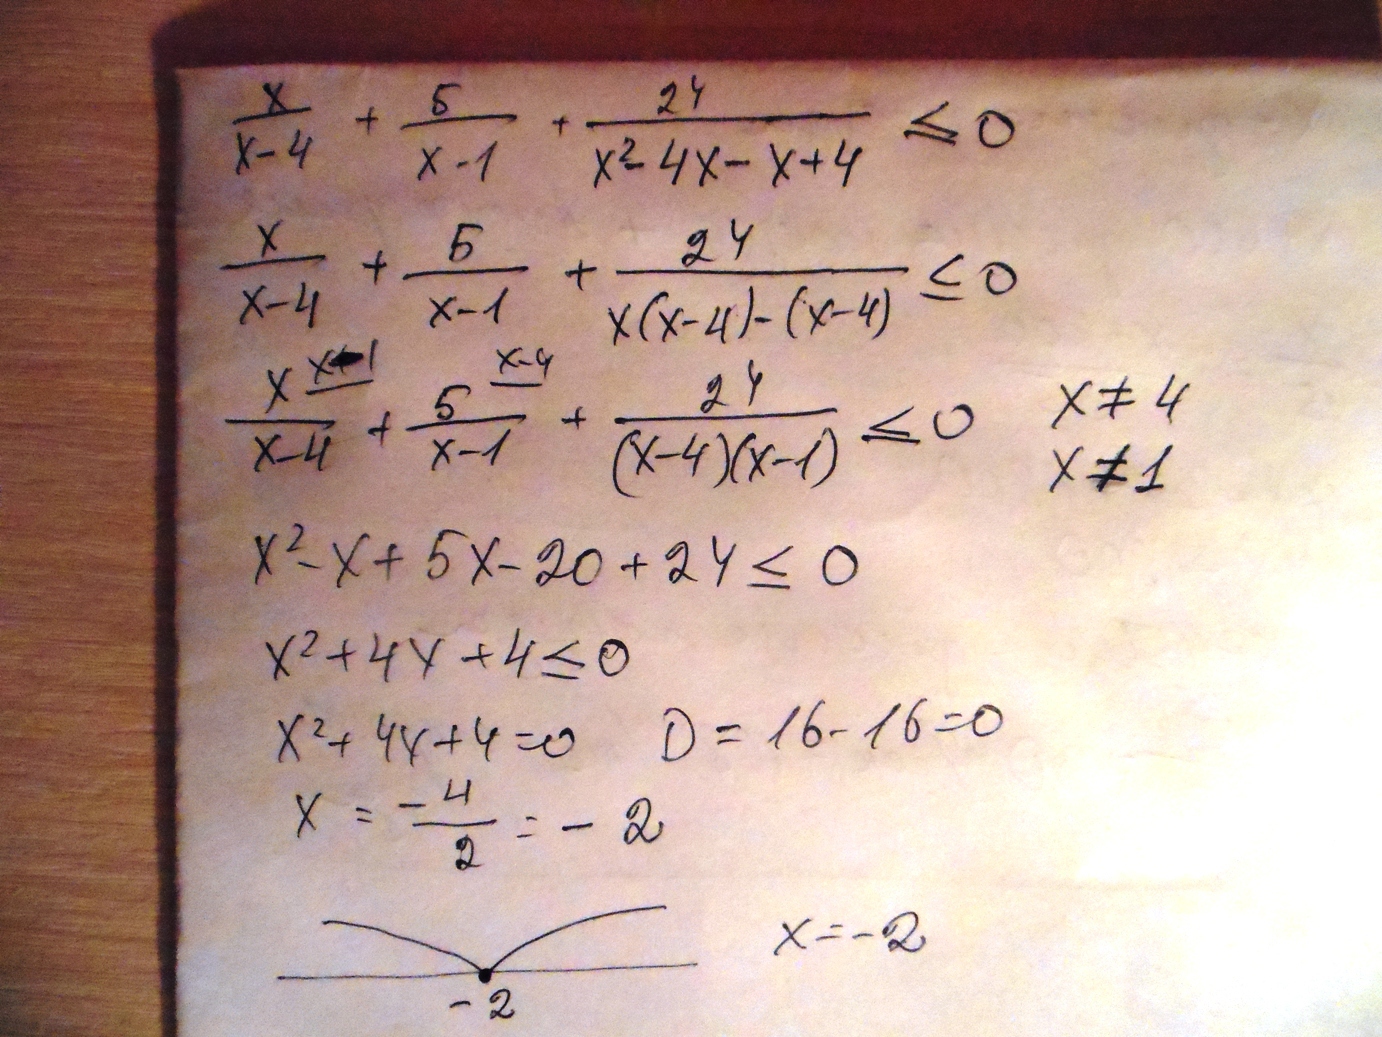 x/(x-4) + 5/(x-1) + 24/(x²-4x-x+4) ≤ 0
x/(x-4) + 5/(x-1) + 24/(x(x-4)-(x-4)) ≤ 0
x^(x-1)/(x-4) + 5^(x-4)/(x-1) + 24/((x-4)(x-1)) ≤ 0 x≠4
x≠1
x²-x+5x-20+24 ≤ 0
x²+4x+4 ≤ 0
x²+4x+4=0 D = 16-16=0
x = -4/2 = -2
x=-2
-2